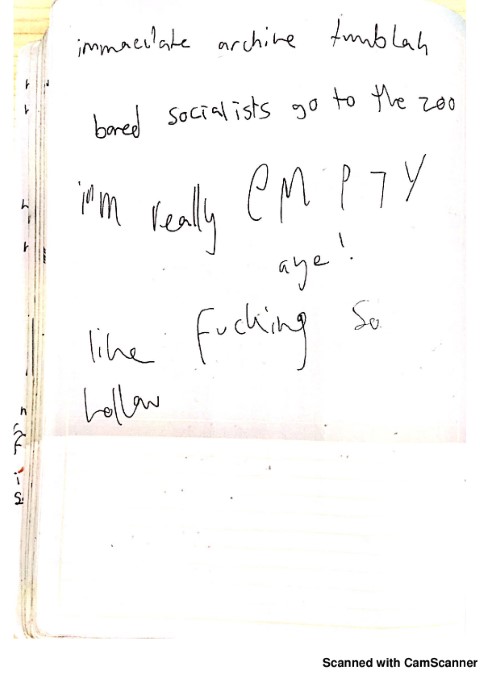 immaculate archive tumblah
bored socialists go to the zoo
i'm really EMPTY
aye!
like fucking so
hollow
Scanned with CamScanner